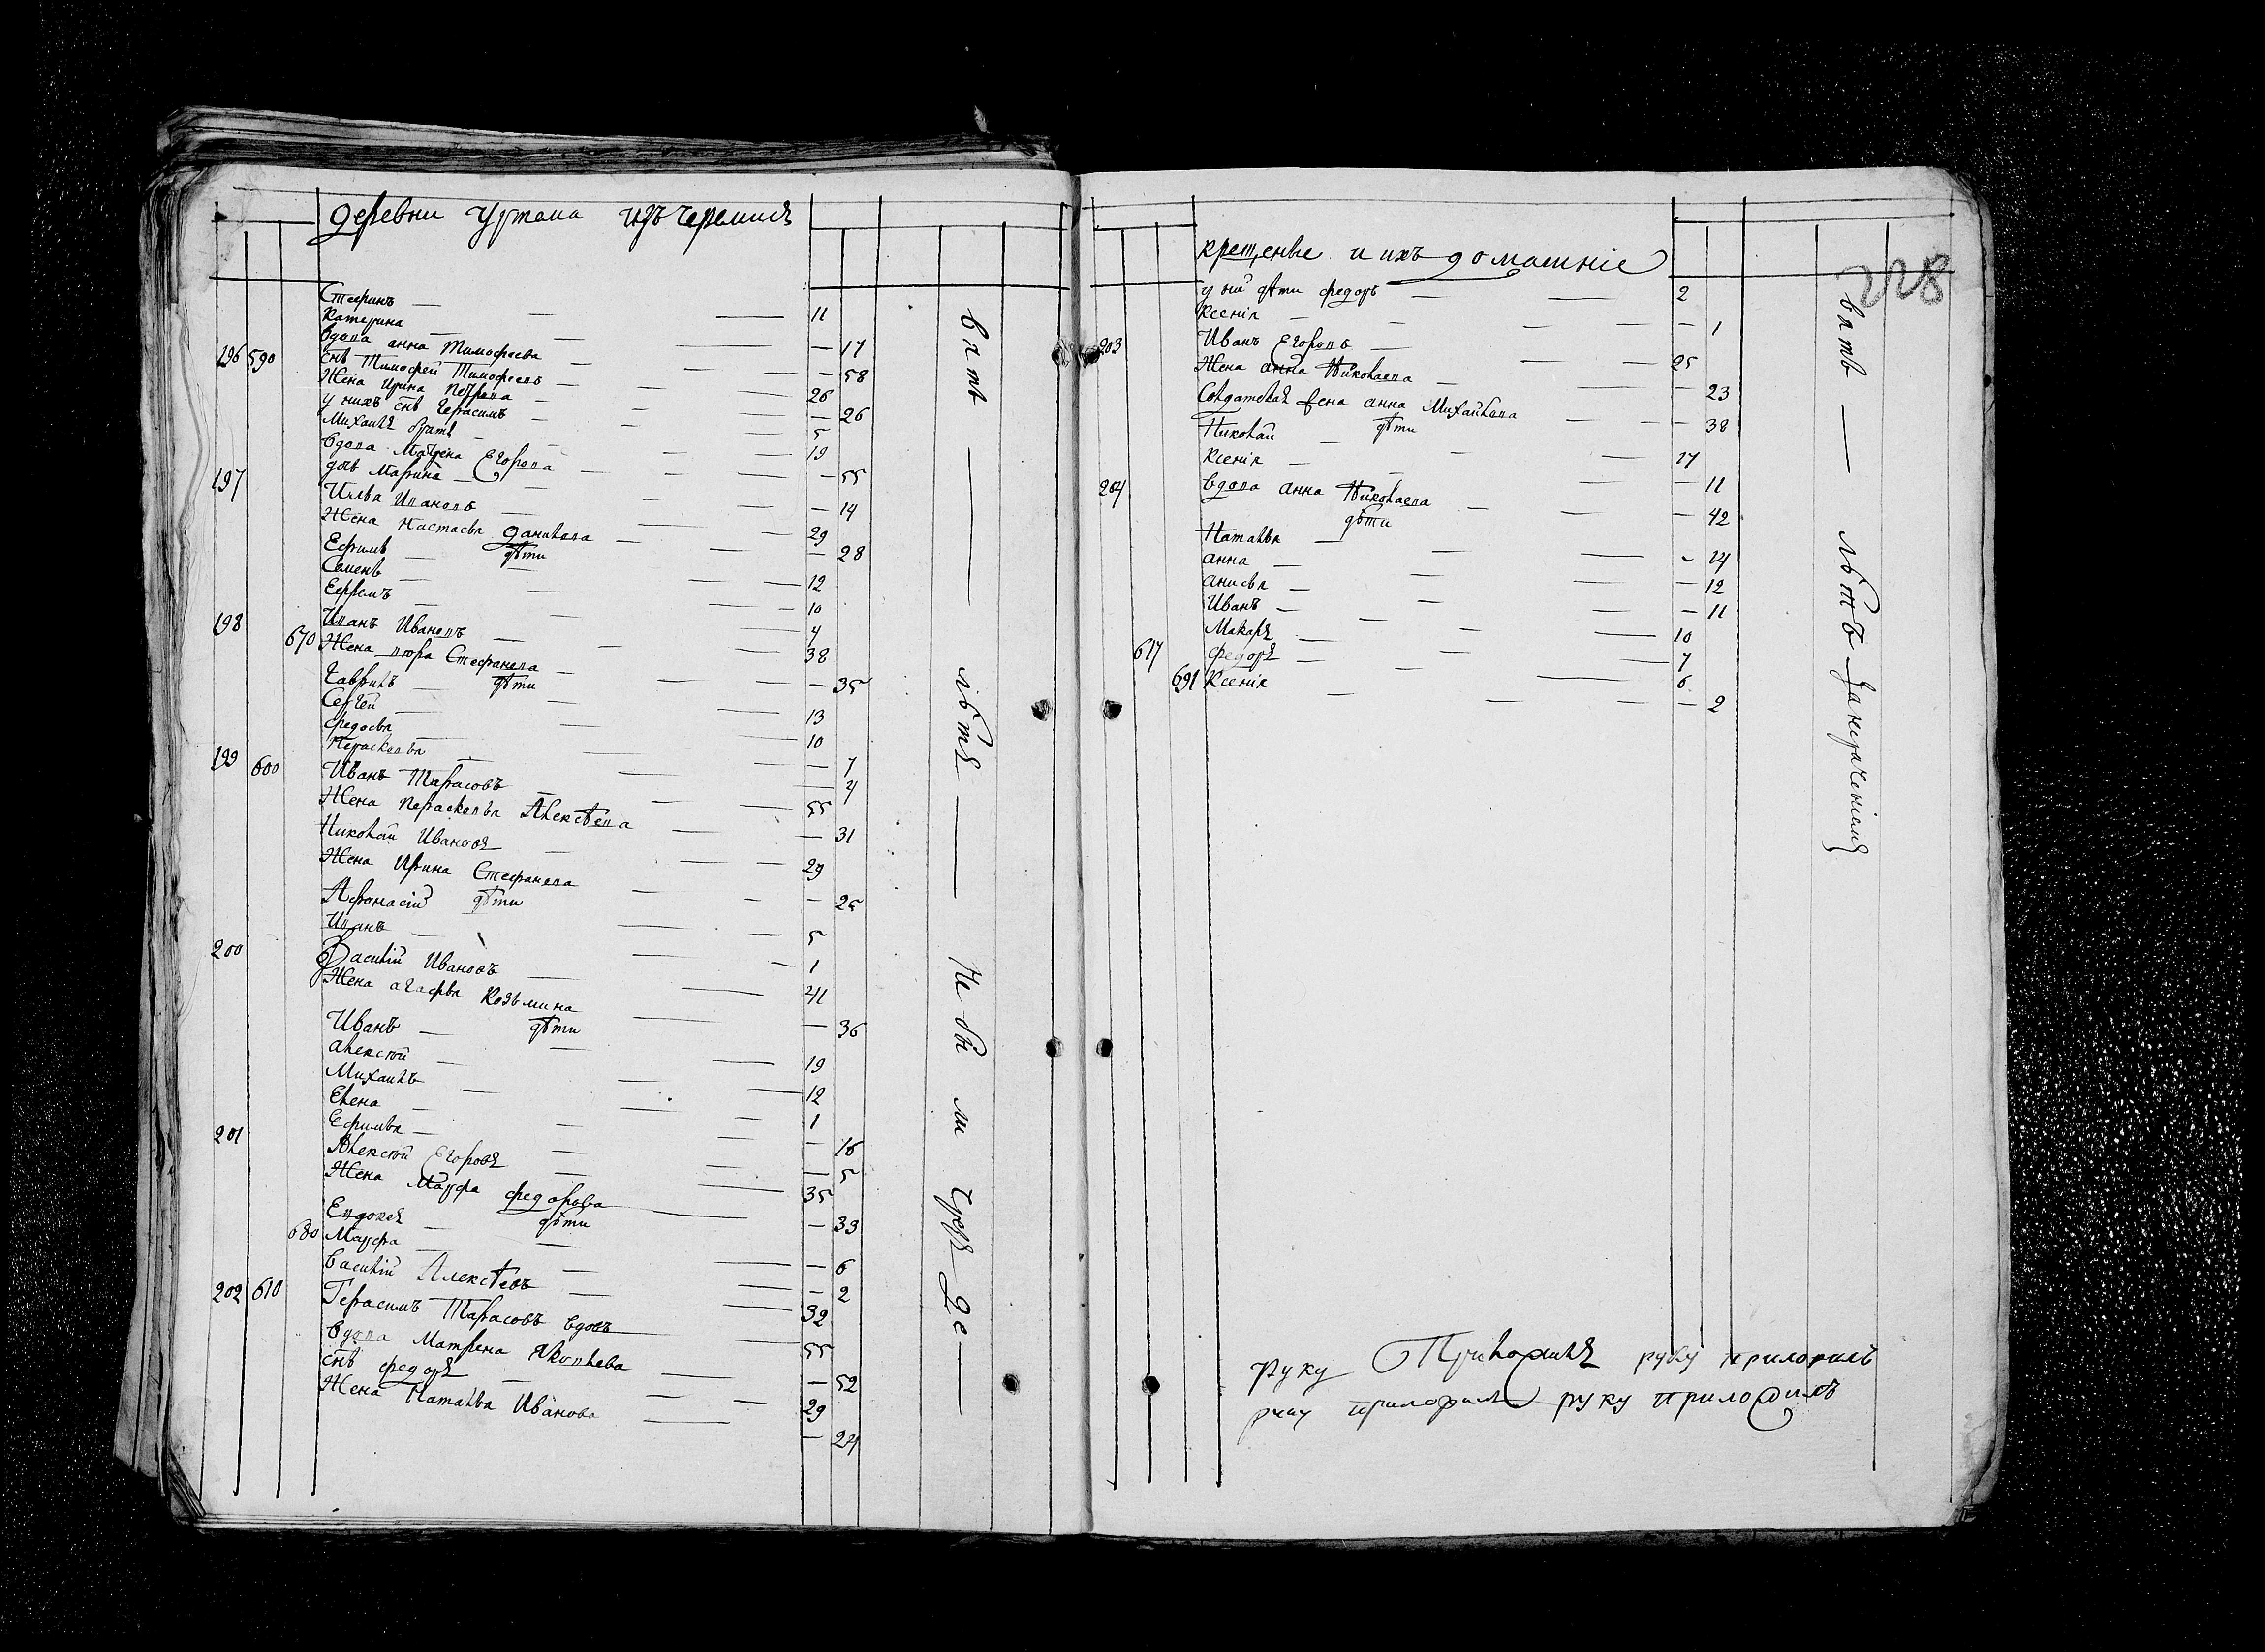 деревни Уртема изъ черемисъ
Стефанъ — 11
Катерина — 17
196 590 вдова анна Тимофеева — 58
снъ Тимофей Тимофеевъ — 26
Жена Ирина Петрова — 26
у нихъ снъ Герасимъ — 5
Михаилъ братъ — 19
вдова Матрена Егорова — 55
197 дчь Марина — 14
Илья Ивановъ — 29
Жена Настасья данилова — 28
дѣти
Ефимъ — 12
Семенъ — 10
Ефремъ — 4
198 Иванъ Ивановъ — 38
670 Жена Стефанова — 35
дѣти
Гаврилъ — 13
Сергей — 10
федосья — 7
Пераскевья — 4
199 600 Иванъ Тарасовъ — 55
Жена Пераскевья Алексѣева — 31
Николай Ивановъ — 29
Жена Ирина Стефанова — 25
Афонасий дѣти — 5
Иванъ — 1
200 Василий Ивановъ — 41
Жена агафья Козьмина — 36
дѣти
Иванъ — 19
алексѣй — 12
Михаилъ — 1
Елена — 16
Ефимья — 5
201 Алексѣй Егоровъ — 35
Жена Марфа федорова — 33
дѣти
Евдокея — 6
680 Марфа — 2
Василий Алексѣевъ — 32
202 610 Герасимъ Тарасовъ вдовъ — 55
вдова Матрена Яковлева — 52
снъ федоръ — 29
Жена Наталья Иванова — 24
крещеные и ихъ домашние
у ней дѣти федоръ — 2
Ксения — 1
203 Иванъ Егоровъ — 25
Жена анна Николаева — 23
Солдатская жена анна Михайлова — 38
дѣти
Николай — 17
Ксения — 11
204 вдова анна Николаева — 42
дѣти
Наталья — 14
анна — 12
анисья — 11
Иванъ — 10
Макаръ — 7
617 федоръ — 6
691 Ксения — 2
228
руку приложилъ
руку приложилъ руку приложилъ